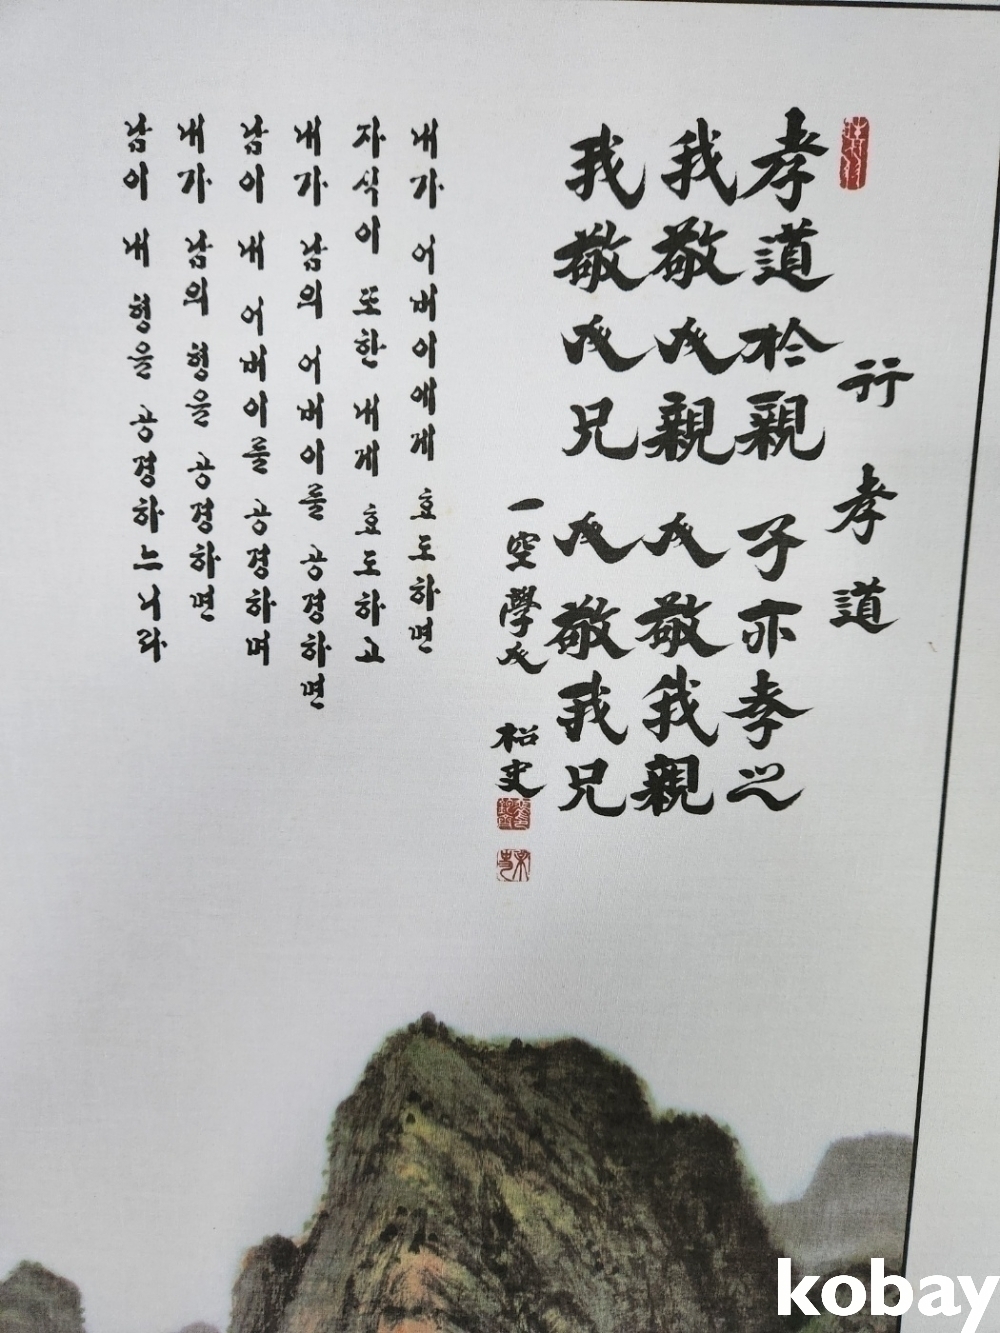 行 孝 道
孝道於親 子亦孝之
我敬人親 人敬我親
我敬人兄 人敬我兄
一空學人 松史
내가 어버이에게 효도하면
자식이 또한 내게 효도하고
내가 남의 어버이를 공경하면
남이 내 어버이를 공경하며
내가 남의 형을 공경하면
남이 내 형을 공경하느니라
kobay